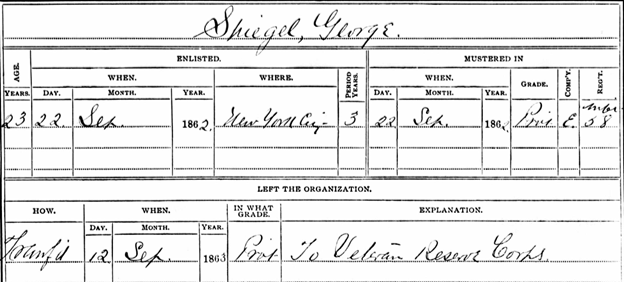 Spiegel, George.
ENLISTED. MUSTERED IN
AGE. WHEN. WHERE. PERIOD YEARS. WHEN. GRADE. COMP'Y. REG'T.
YEARS. DAY. MONTH. YEAR. DAY. MONTH. YEAR.
Inf.
23 22 Sep. 1862. New York City 3 22 Sep. 1862 Priv E. 58
LEFT THE ORGANIZATION.
HOW. WHEN. IN WHAT GRADE. EXPLANATION.
DAY. MONTH. YEAR.
Transf'd 12 Sep. 1863 Priv To Veteran Reserve Corps.